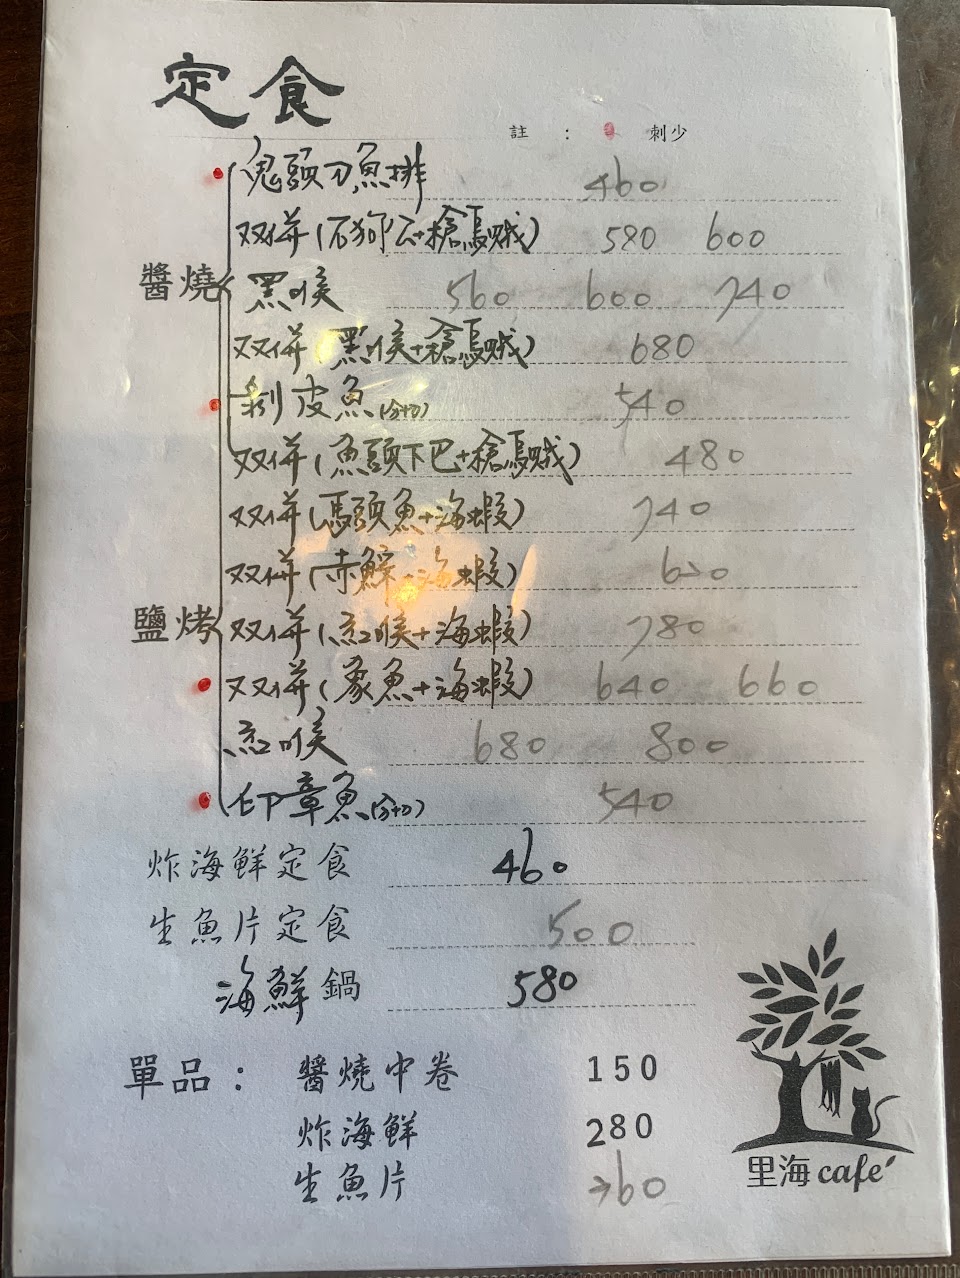 定食
註： 刺少
鬼頭刀魚排 460
双併(石狗公+槍烏賊) 580 600
醬燒 黑喉 560 600 740
双併(黑喉+槍烏賊) 680
剝皮魚(分切) 540
双併(魚頭下巴+槍烏賊) 480
双併(馬頭魚+海蝦) 740
双併(赤鯮+海蝦) 620
鹽烤 双併(紅喉+海蝦) 780
双併(象魚+海蝦) 640 660
紅喉 680 800
印章魚(分切) 540
炸海鮮定食 460
生魚片定食 500
海鮮鍋 580
單品： 醬燒中卷 150
炸海鮮 280
生魚片 260
里海 café